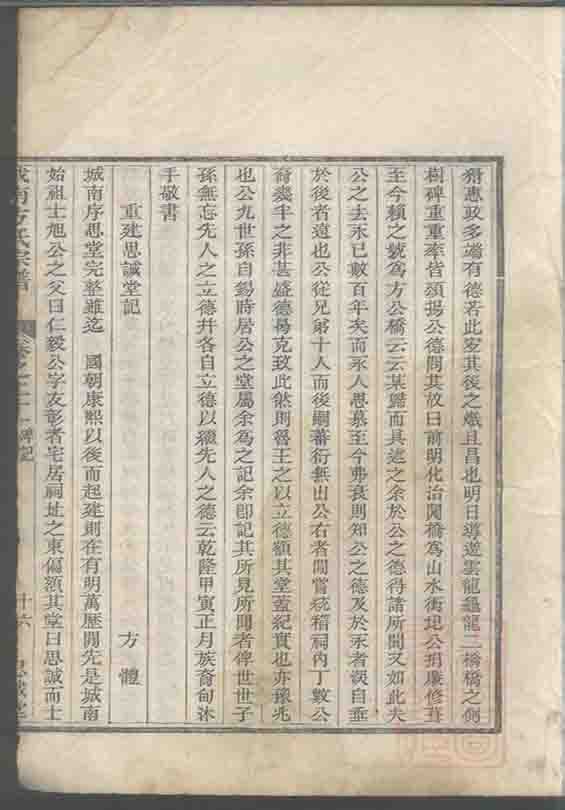 惠政多端有德若此宜其後之熾且昌也明日導遊雲龍龜龍二橋橋之側
樹碑重重率皆頌揚公德問其故曰前明化治間橋為山水衝圯公捐廉修葺
至今賴之號為方公橋云云某歸而具述之余於公之德得諸所聞又如此夫
公之去永已數百年矣而永人思慕至今弗衰則知公之德及於永者深自垂
於後者遠也公從兄弟十人而後嗣蕃衍無出公右者間嘗統稽祠內丁數公
裔幾半之非甚盛德曷克致此然則魯王之以立德額其堂蓋紀實也亦豫兆
也公九世孫自錫時居公之堂屬余為之記余卽記其所見所聞者俾世世子
孫無忘先人之立德幷各自立德以繼先人之德云乾隆甲寅正月族裔甸沐
手敬書
重建思誠堂記
方體
城南序思堂完整雖迄 國朝康熙以後而起建則在有明萬歷間先是城南
始祖士旭公之父曰仁毅公字友彰者宅居祠址之東偏額其堂曰思誠而士
城南方氏宗譜 卷之二 碑記 廿六 思誠堂